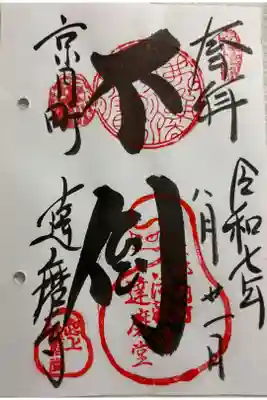 奉拝
令和七年
八月廿一日
不倒
達磨堂
京円町
達磨寺